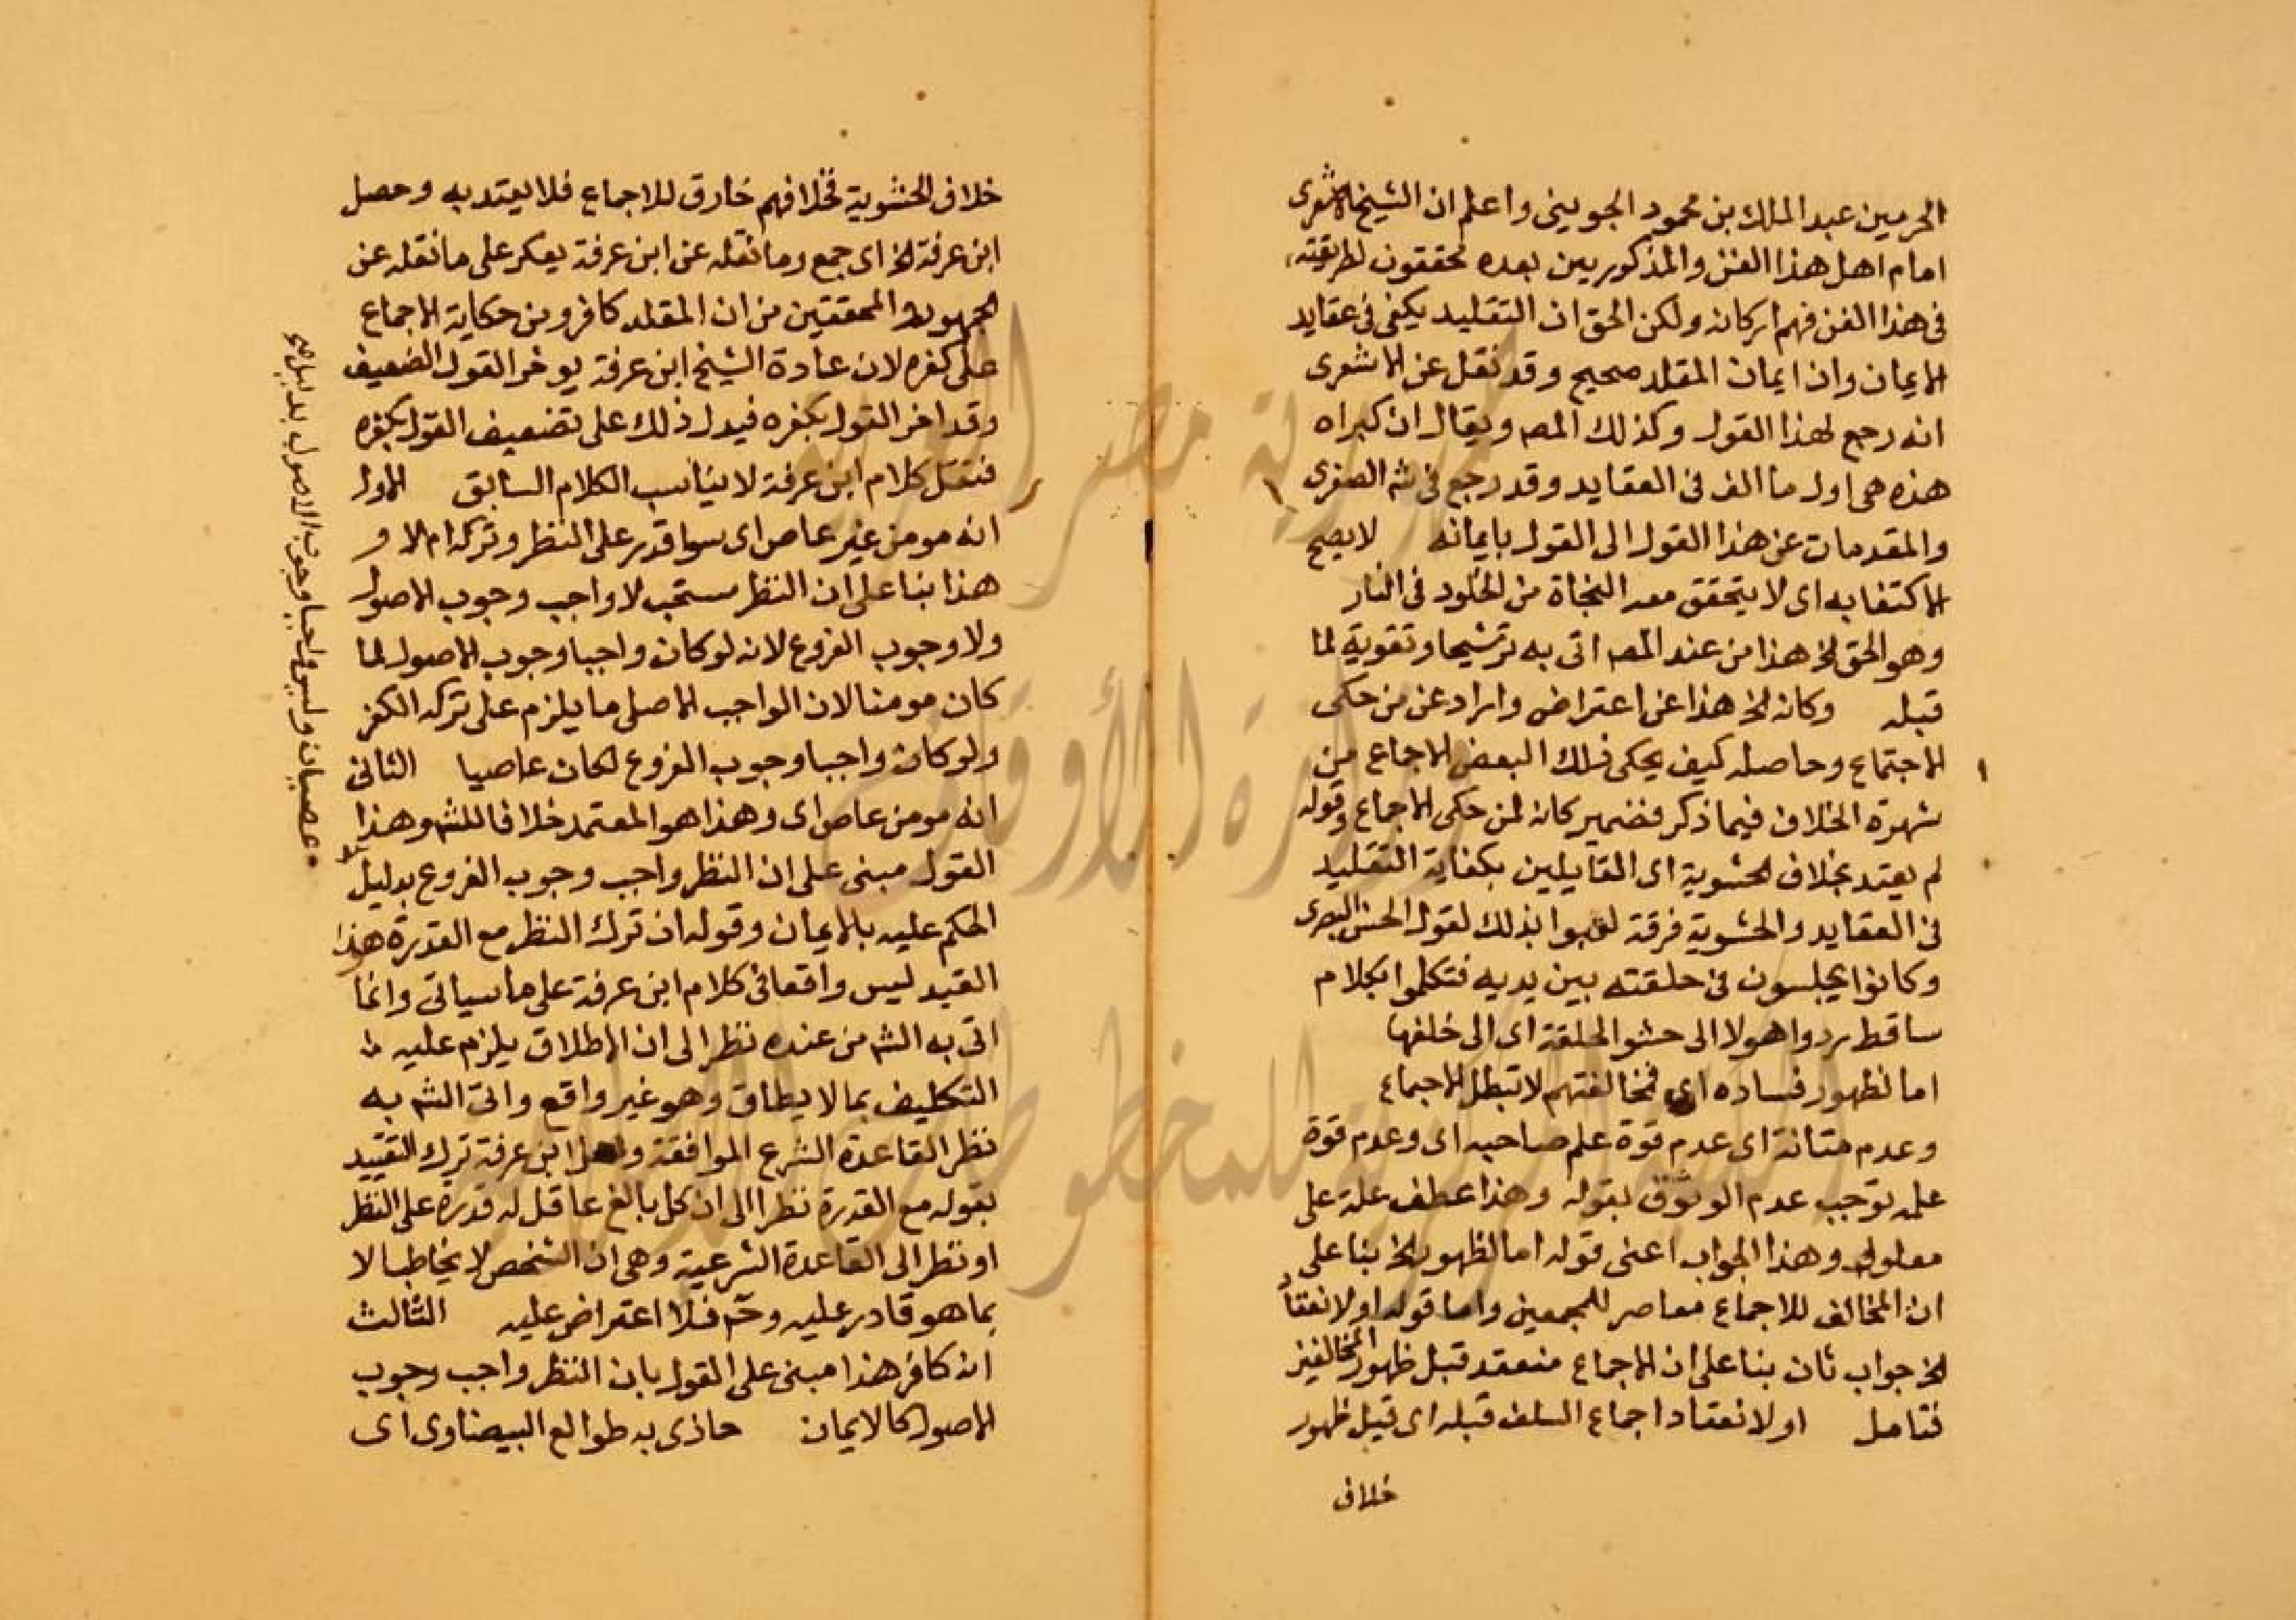 الحرمين عبد الملك بن محمود الجويني واعلم ان الشيخ الاشعرى
امام اهل هذا الفن والمذكوريين بعده محققون لطريقته
فى هذا الفن فهم اركانه ولكن الحق ان التقليد يكفى فى عقايد
الايمان وان ايمان المقلد صحيح وقد نقل عن الاشعرى
انه رجع لهذا القول وكذلك المص ويقال ان كبراه
هذه هى اول ما الف فى العقايد وقد رجع فى شه الصغرى
والمقدمات عن هذا القول الى القول بايمانه لا يصح
الاكتفا به اى لا يتحقق معه النجاة من الخلود فى النار
وهو الحق الخ هذا من عند المص اتى به ترشيحا وتقوية لما
قبله وكانه الخ هذا عن اعتراض وايراد عن من حكى
الاجتماع وحاصله كيف يحكى ذلك البعض الاجماع من
شهرة الخلاف فيما ذكر فضمير كانه لمن حكى الاجماع وقوله
لم يعتد بخلاف الحشوية اى القايلين بكفاية التقليد
فى العقايد والحشوية فرقة لقبوا بذلك لقول الحسن البصرى
وكانوا يجلسون فى حلقته بين يديه فتكلموا بكلام
ساقط ردوا هولا الى حشو الحلقة اى الى خلفها
اما لظهور فساده اى فمخالفتهم لا تبطل الاجماع
وعدم متانة اى عدم قوة علم صاحبه اى وعدم قوة
علمه توجب عدم الوثوق بقوله وهذا عطف علة على
معلول وهذا الجواب اعنى قوله اما لظهور الخ بنا على
ان المخالف للاجماع معاصر للمجمعين واما قوله او لانعقاد
الخ جواب ثان بنا على ان الاجماع منعقد قبل ظهور المخالفين
فتامل او لانعقاد اجماع السلف قبله اى قبل ظهور
خلاف
خلاف الحشوية فخلافهم خارق للاجماع فلا يعتد به وحصل
ابن عرفة الخ اى جمع وما نقله عن ابن عرفة يعكر على ما نقله عن
الجمهور والمحققين من ان المقلد كافر ومن حكاية الاجماع
على كفره لان عادة الشيخ ابن عرفة يوخر القول الضعيف
وقد اخر القول بكفره فيدل ذلك على تضعيف القول بكفره
فنقل كلام ابن عرفة لا يناسب الكلام السابق الاول
انه مومن غير عاص اى سوا قدر على النظر وتركه ام لا و
هذا بنا على ان النظر مستحب لا واجب وجوب الاصول
ولا وجوب الفروع لانه لو كان واجبا وجوب الاصول لما
كان مومنا لان الواجب الاصلى ما يلزم على تركه الكفر
ولو كان واجبا وجوب الفروع لكان عاصيا الثانى
انه مومن عاص اى وهذا هو المعتمد خلافا للشه وهذا
القول مبنى على ان النظر واجب وجوب الفروع بدليل
الحكم عليه بالايمان وقوله ان ترك النظر مع القدرة هذا
القيد ليس واقعا فى كلام ابن عرفة على ما سياتى وانما
اتى به الشه من عنده نظرا الى ان الاطلاق يلزم عليه
التكليف بما لا يطاق وهو غير واقع واتى الشه به
نظر القاعدة الشرع الموافقة ولعل ابن عرفة ترك التقييد
بقوله مع القدرة نظرا الى ان كل بالغ عاقل له قدرة على النظر
او نظر الى القاعدة الشرعية وهى ان الشخص لا يخاطب الا
بما هو قادر عليه وحـ فلا اعتراض عليه الثالث
انه كافر هذا مبنى على القول بان النظر واجب وجوب
الاصول كالايمان حاذى به طوالع البيضاوى اى
عصيان وليس واجبا وجوب الاصول بدليل صح
جمهورية مصر العربية
وزارة الأوقاف
المكتبة المركزية للمخطوطات الإسلامية